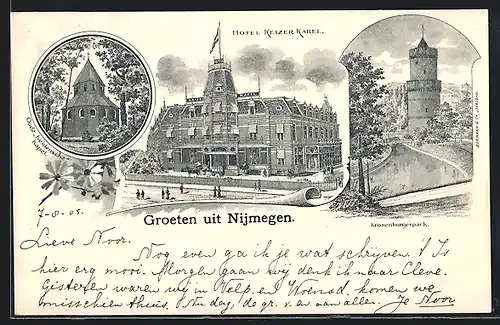 HOTEL KEIZER KAREL.
Oude Heidensche Kapel
Kronenburgerpark.
Groeten uit Nijmegen.
7-8-05.
Lieve Noor.
Nog even ga ik je wat schrijven. 't Is
hier erg mooi. Morgen gaan wij denk ik naar Cleve.
Gisteren waren wij in Velp, en Woensd. komen we
misschien thuis. Nu dag, de gr. v. en aan allen. Je Noor